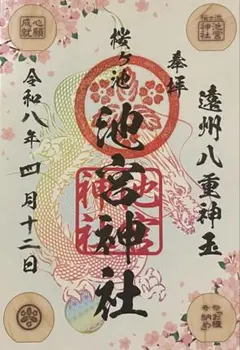 奉拝
遠州八重神玉
桜ヶ池
池宮神社
令和八年四月十二日
心願
成就
池宮
神社